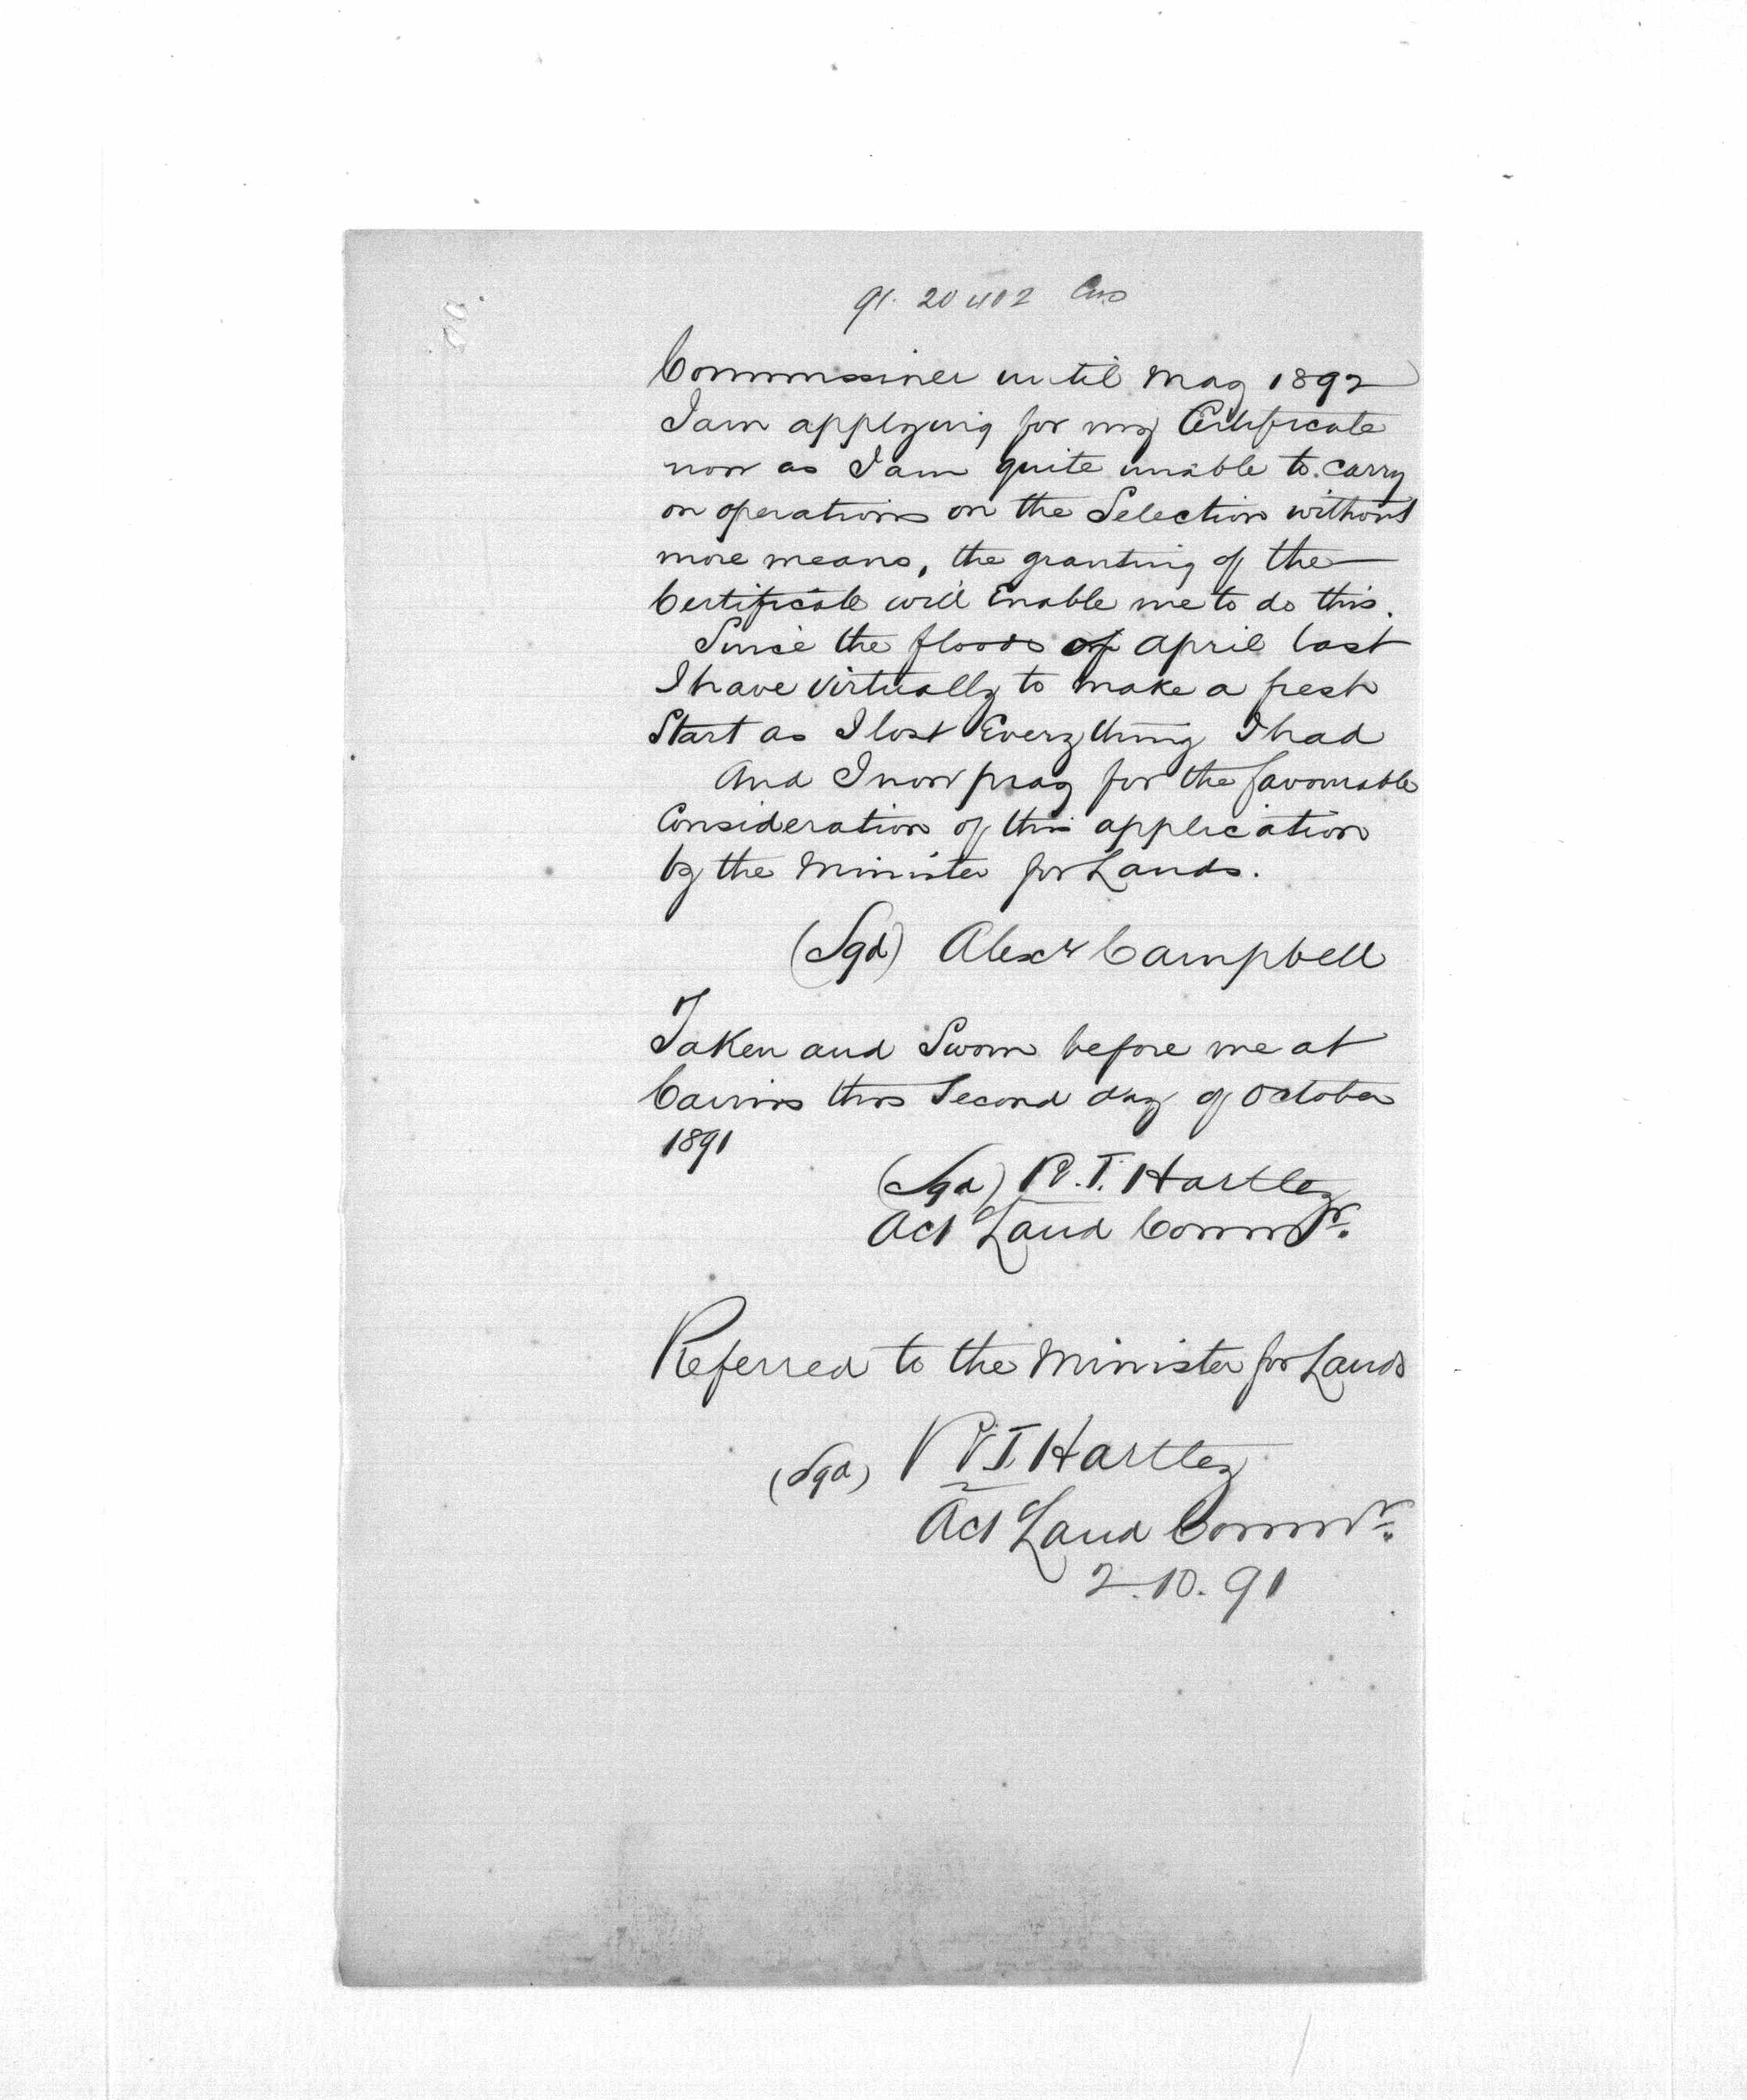 91. 20402 Cns
Commissiner until May 1892
I am applying for my Certificate
now as I am quite unable to carry
on operations on the Selection without
more means, the granting of the
Certificate will Enable me to do this.
Since the floods of April last
I have virtually to make a fresh
Start as I lost Everything I had
And I now pray for the favourable
Consideration of this application
by the Minister for Lands.
(Sgd) Alexr Campbell
Taken and Sworn before me at
Cairns this Second day of October
1891
(Sgd) R. T. Hartley
Act Land Commr.
Referred to the Minister for Lands
(Sgd) R T. Hartley
Act Land Commr.
2.10.91